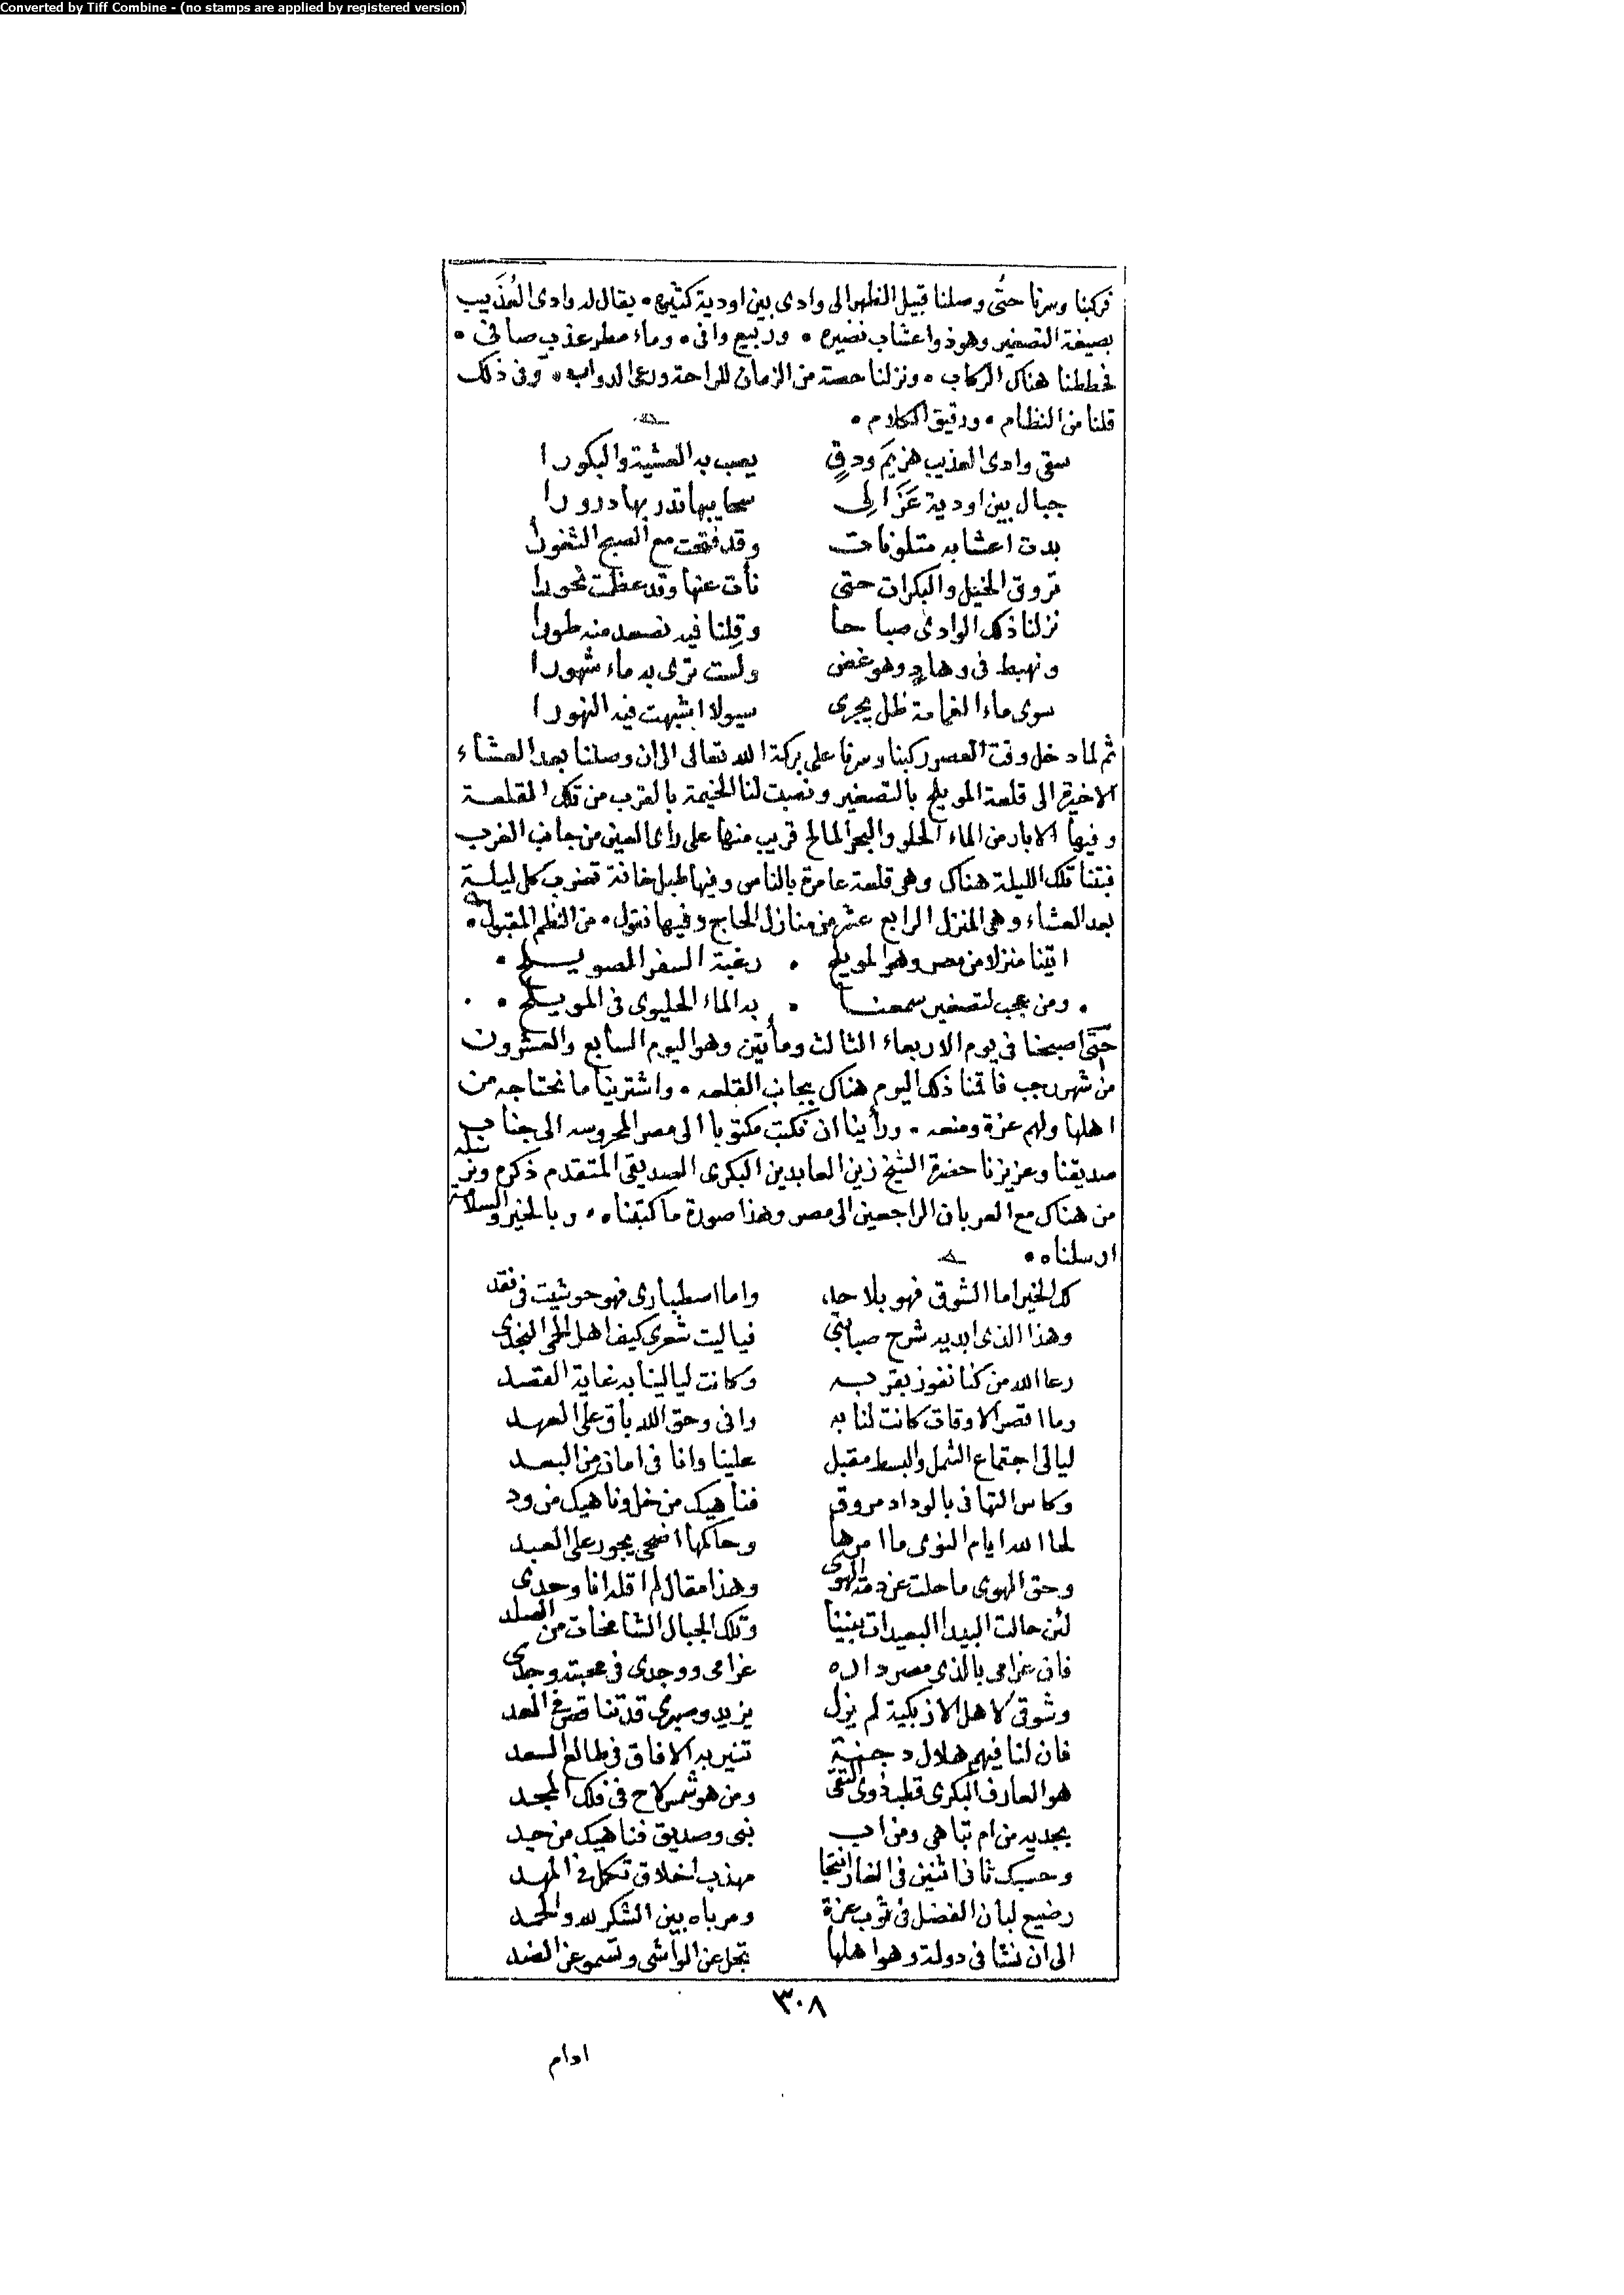 Converted by Tiff Combine - (no stamps are applied by registered version)
فركبنا وسرنا حتى وصلنا قبيل الظهر الى وادى بين اودية كثيره • يقال له وادى العُذَيب
بصيغة التصغير وهو ذو اعشاب نضيره • وربيع وافى • وماء مطر عذب صافى •
فحططنا هناك الركاب • ونزلنا حصة من الزمان للراحة ورعى الدواب • وفى ذلك
قلنا من النظام • ورقيق الكلام •
سقى وادى العذيب هزيمَ ودقٍ يصب به العشية والبكورا
جبال بين اودية عَزَالِى سحايبها تدر بها درورا
بدت اعشابه متلونات وقد فتحت مع الصبح الثغورا
تروق الخيل والبكرات حتى نأت عنها وقد عظمت نحورا
نزلنا ذلك الوادى صباحا وقِلنا فيه نصعد منه طورا
ونهبط فى وهادٍ وهو غض ولست ترى به ماء شهورا
سوى ماء الغمامة ظل يجرى سيولا اشبهت فيه النهورا
ثم لما دخل وقت العصر ركبنا وسرنا على بركة الله تعالى الى ان وصلنا بعد العشاء
الاخيرة الى قلعة المويلح بالتصغير ونصبت لنا الخيمة بالقرب من تلك القلعة
وفيها الابار من الماء الحلو والبحر المالح قريب منها على راى العين من جانب الغرب
فبتنا تلك الليلة هناك وهى قلعة عامرة بالناس وفيها طبل خانة تضرب كل ليلة
بعد العشاء وهى المنزل الرابع عشر من منازل الحاج وفيها نقول • من النظم المقبول •
اتينا منزلا من مصر وهو المويلح • رغبة السفر المصويلح •
• ومن عجب لتصغير سمعنا • بد الماء الحليوى فى المويلح •
حتى اصبحنا فى يوم الاربعاء الثالث ومأتين وهو اليوم السابع والعشرون
من شهر رجب فاقمنا ذلك اليوم هناك بجانب القلعه • واشترينا ما نحتاجه من
اهلها ولهم عزة ومنعه • ورأينا ان نكتب مكتوبا الى مصر المحروسه الى جناب
صديقنا وعزيزنا حضرة الشيخ زين العابدين البكرى الصديقى المتقدم ذكره ونرسله
من هناك مع العربان الراجعين الى مصر وهذا صورة ما كتبناه • وبالخير والسلامة
ارسلناه •
لك الخير اما الشوق فهو بلا حد واما اصطبارى فهو حوشيت فى نقد
وهذا الذى ابديه شرح صبابتى فياليت شعرى كيف اهل الحمى النجدى
رعا الله من كنا نفوز بقربه وكانت ليالينا به غاية القصد
وما اقصر الاوقات كانت لنا به وانى وحق الله باق على العهد
ليالى اجتماع الشمل والبسط مقبل علينا وانا فى امان من البعد
وكاس التهانى بالوداد مروق فناهيك من خل وناهيك من ود
لحا الله ايام النوى ما امرها وحاكمها اضحى يجور على العبد
وحق الهوى ما حلت عن ذمة الهوى وهذا مقال لم اقله انا وحدى
لئن حالت البيد البعيدات بيننا وتلك الجبال الشامخات من الصلد
فانى غرامى بالذى مصر داره غرامى ووجدى فى محبته وجدى
وشوقى لاهل الازبكية لم يزل يزيد وصبرى قد تناقص فى العد
فان لنا فيهم هلال دجنة تنير به الافاق فى طالع السعد
هو العارف البكرى قطب ذوى التقى ومن هو شمس لاح فى فلك المجد
بجديه من ام تباهى ومن اب نبى وصديق فناهيك من جد
وحسبك ثانى اثنين فى الغار انتجا مهذب اخلاق تكمل فى المهد
رضيع لبان الفضل فى ثوب عزة ومرباه بين الشكر لله والحمد
الى ان نشا فى دولة وهو اهلها تجل عن الواشى وتسمو عن الضد
٣٠٨
ادام